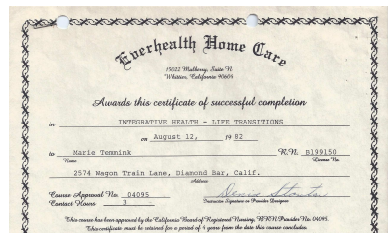 Everhealth Home Care
15022 Mulberry, Suite N
Whittier, California 90604
Awards this certificate of successful completion
in INTEGRATIVE HEALTH - LIFE TRANSITIONS
on August 12, 19 82
to Marie Temmink R.N. B199150
Name License No.
2574 Wagon Train Lane, Diamond Bar, Calif.
Address
Course Approval No. 04095
Contact Hours 3
Instructor Signature or Provider Designee
This course has been approved by the California Board of Registered Nursing, BRN Provider No. 04095.
This certificate must be retained for a period of 4 years from the date this course concludes.